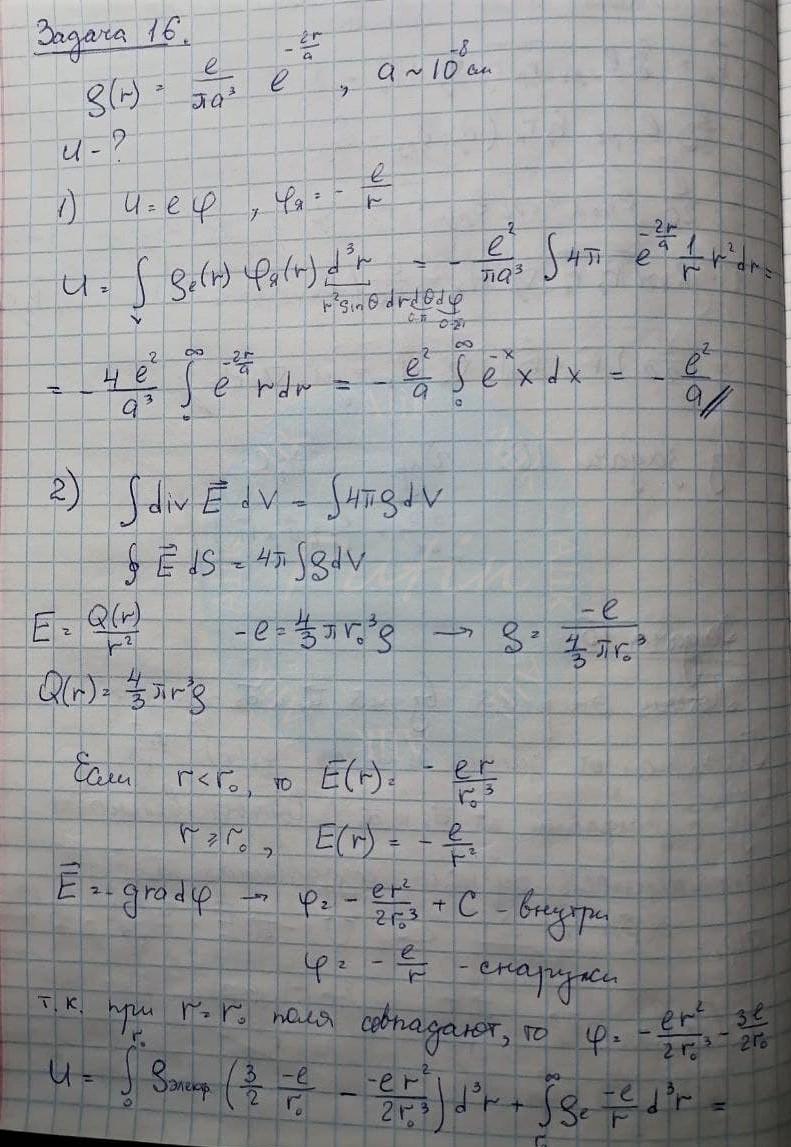 Задача 16.
ρ(r) = e/(πa³) e^(-2r/a) , a ~ 10⁻⁸ см
U - ?
1) U = eφ , φя = - e/r
U = ∫_v ρe(r) φя(r) d³r = - e²/(πa³) ∫ 4π e^(-2r/a) 1/r r² dr =
r² sinθ dr dθ dφ
0-π 0-2π
= - 4e²/a³ ∫₀^∞ e^(-2r/a) r dr = - e²/a ∫₀^∞ e^(-x) x dx = - e²/a //
2) ∫ div E⃗ dV = ∫ 4πρ dV
∮ E⃗ dS = 4π ∫ρdV
E = Q(r)/r² -e = 4/3 πr₀³ρ → ρ = -e/(4/3 πr₀³)
Q(r) = 4/3 πr³ρ
Если r < r₀, то E(r) = - er/r₀³
r ≥ r₀, E(r) = - e/r²
E⃗ = - grad φ → φ = - er²/(2r₀³) + C - внутри
φ = - e/r - снаружи
т.к. при r = r₀ поля совпадают, то φ = - er²/(2r₀³) - 3e/(2r₀)
U = ∫₀^r₀ ρэлектр (3/2 -e/r₀ - -er²/(2r₀³)) d³r + ∫^∞ ρe -e/r d³r =